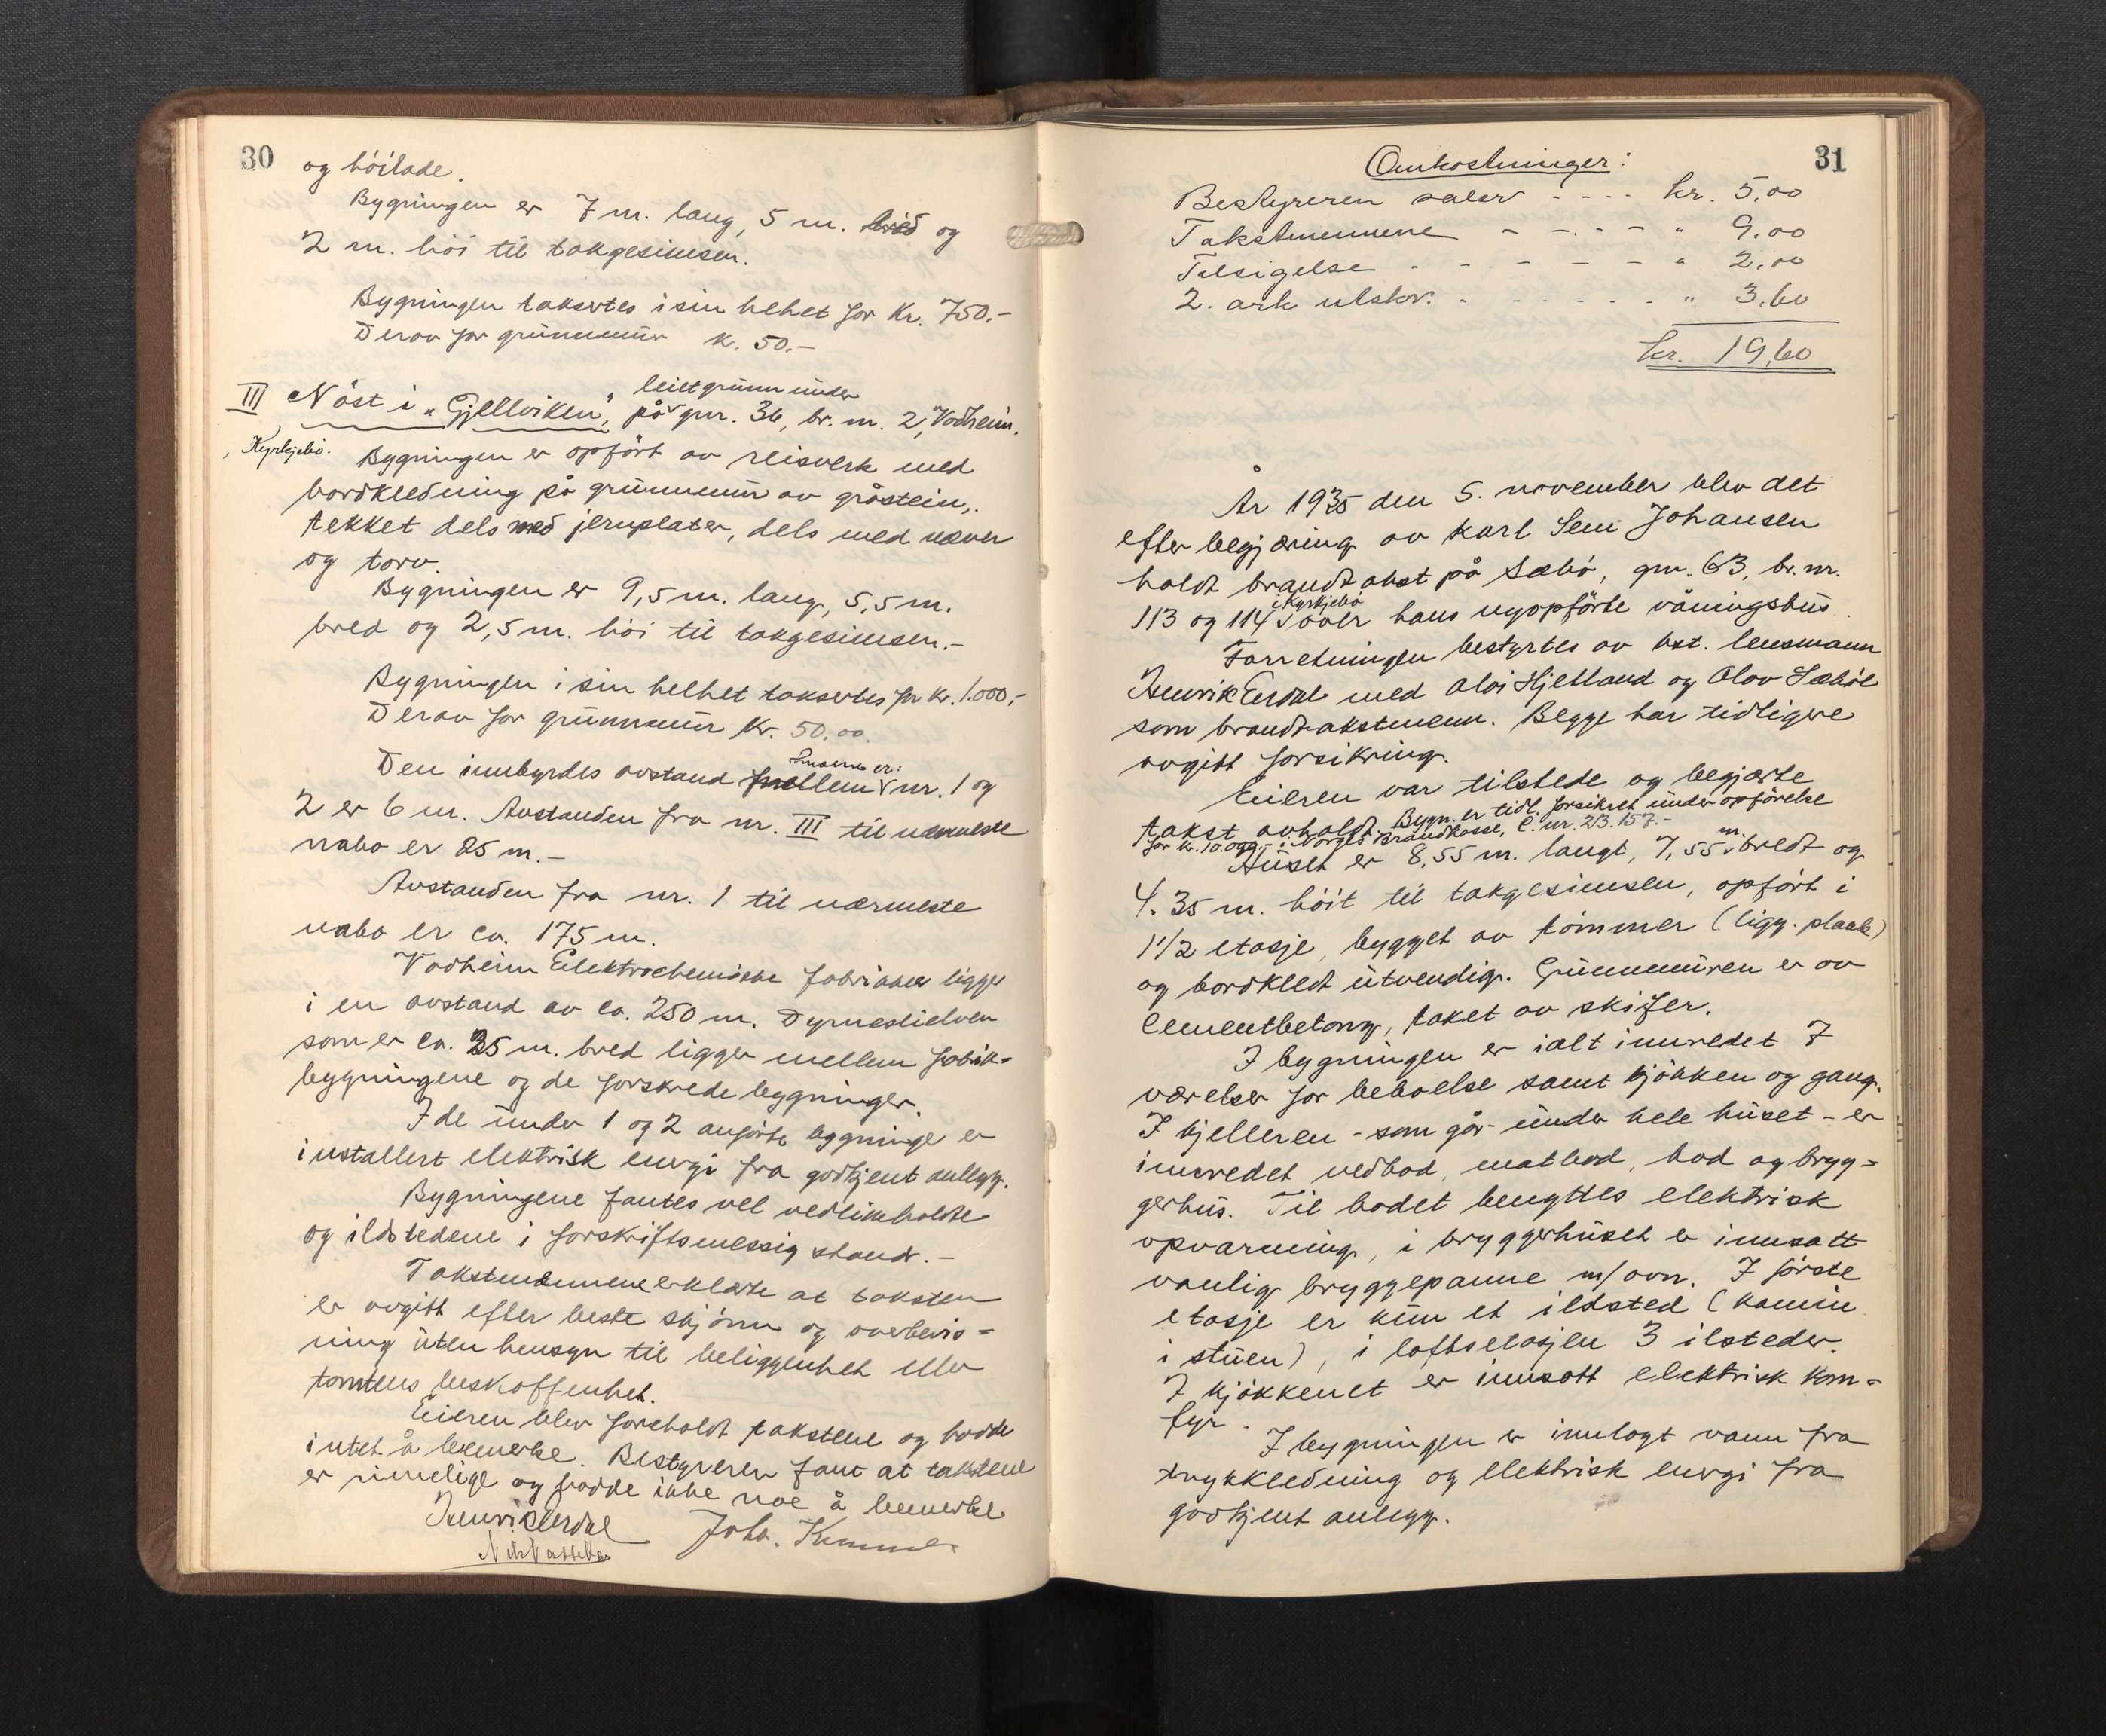 30
og höilade.
Bygningen er 7 m. lang, 5 m. bred og
2 m. höi til takgesimsen.
Bygningen taksertes i sin helhet for Kr. 750.-
Derav for grunnmur kr. 50.-
III Nöst i "Gjellviken", på leiet grunn under gnr. 36, br. nr. 2, Vadheim,
Kyrkjebö.
Bygningen er opfört av reisverk med
bordkledning på grunnmur av gråstein,
tekket dels med jernplater, dels med næver
og torv.
Bygningen er 9,5 m. lang, 5,5 m.
bred og 2,5 m. höi til takgesimsen.-
Bygningen i sin helhet taksertes for kr. 1.000,-
Derav for grunnmur kr. 50.00.
Den innbyrdes avstand mellem nr. 1 og
2 er 6 m. Avstanden fra nr. III til nærmeste
nabo er 25 m.-
Avstanden fra nr. 1 til nærmeste
nabo er ca. 175 m.
Vadheim Elektrochemiske fabrikker ligger
i en avstand av ca. 250 m. Dyrneslielven
som er ca. 35 m. bred ligger mellem fabrik-
bygningene og de forskrede bygninger.
I de under 1 og 2 anförte bygninger er
installert elektrisk energi fra godkjent anlegg.
Bygningene fantes vel vedlikeholdte
og ildstedene i forskriftsmessig stand.-
Takstmennene erklærte at taksten
er avgitt efter beste skjönn og overbevis-
ning uten hensyn til beliggenhet eller
tomtens beskaffenhet.
Eieren blev foreholdt takstene og hadde
intet å bemerke. Bestyreren fant at takstene
er rimelige og hadde ikke noe å bemerke
Henrik Erdal Joh.
31
Omkostninger:
Bestyreren salær - - - - kr. 5,00
Takstmennene - - - - " 9.00
Tilsigelse - - - - - " 2,00
2. ark utskr. - - - - - " 3,60
kr. 19,60
År 1935 den 5. november blev det
efter begjæring av Karl Johansen
holdt brandtakst på Sæbö, gnr. 63, br. nr.
113 og 114 i Kyrkjebö over hans nyopförte våningshus
Forretningen bestyrtes av kst. lensmann
Henrik Erdal med Alvi Hjetland og Olav Sæböe
som brandtakstmenn. Begge har tidligere
avgitt forsikring.
Eieren var tilstede og begjærte
takst avholdt. Bygn. er tidl. forsikret under opförelse
for kr. 10.000,- i Norges Brandkasse, L. nr. 213.157.-
Huset er 8,55 m. langt, 7,55 m. bredt og
4.35 m. höit til takgesimsen, opfört i
1 1/2 etasje, bygget av tömmer (ligg. plank)
og bordkledt utvendig. Grunnmuren er av
cementbetong, taket av skifer.
I bygningen er ialt innredet 7
værelser for beboelse samt kjökken og gang.
I kjelleren - som går under hele huset - er
innredet vedbod, matbod, bad og bryg-
gerhus. Til badet benyttes elektrisk
opvarming, i bryggerhuset er innsatt
vanlig bryggepanne m/ovn. I förste
etasje er kun et ildsted (kamin
i stuen), i loftsetasjen 3 ilsteder.
I kjökkenet er innsatt elektrisk kom-
fyr.
I bygningen er innlagt vann fra
trykkledning og elektrisk energi fra
godkjent anlegg.